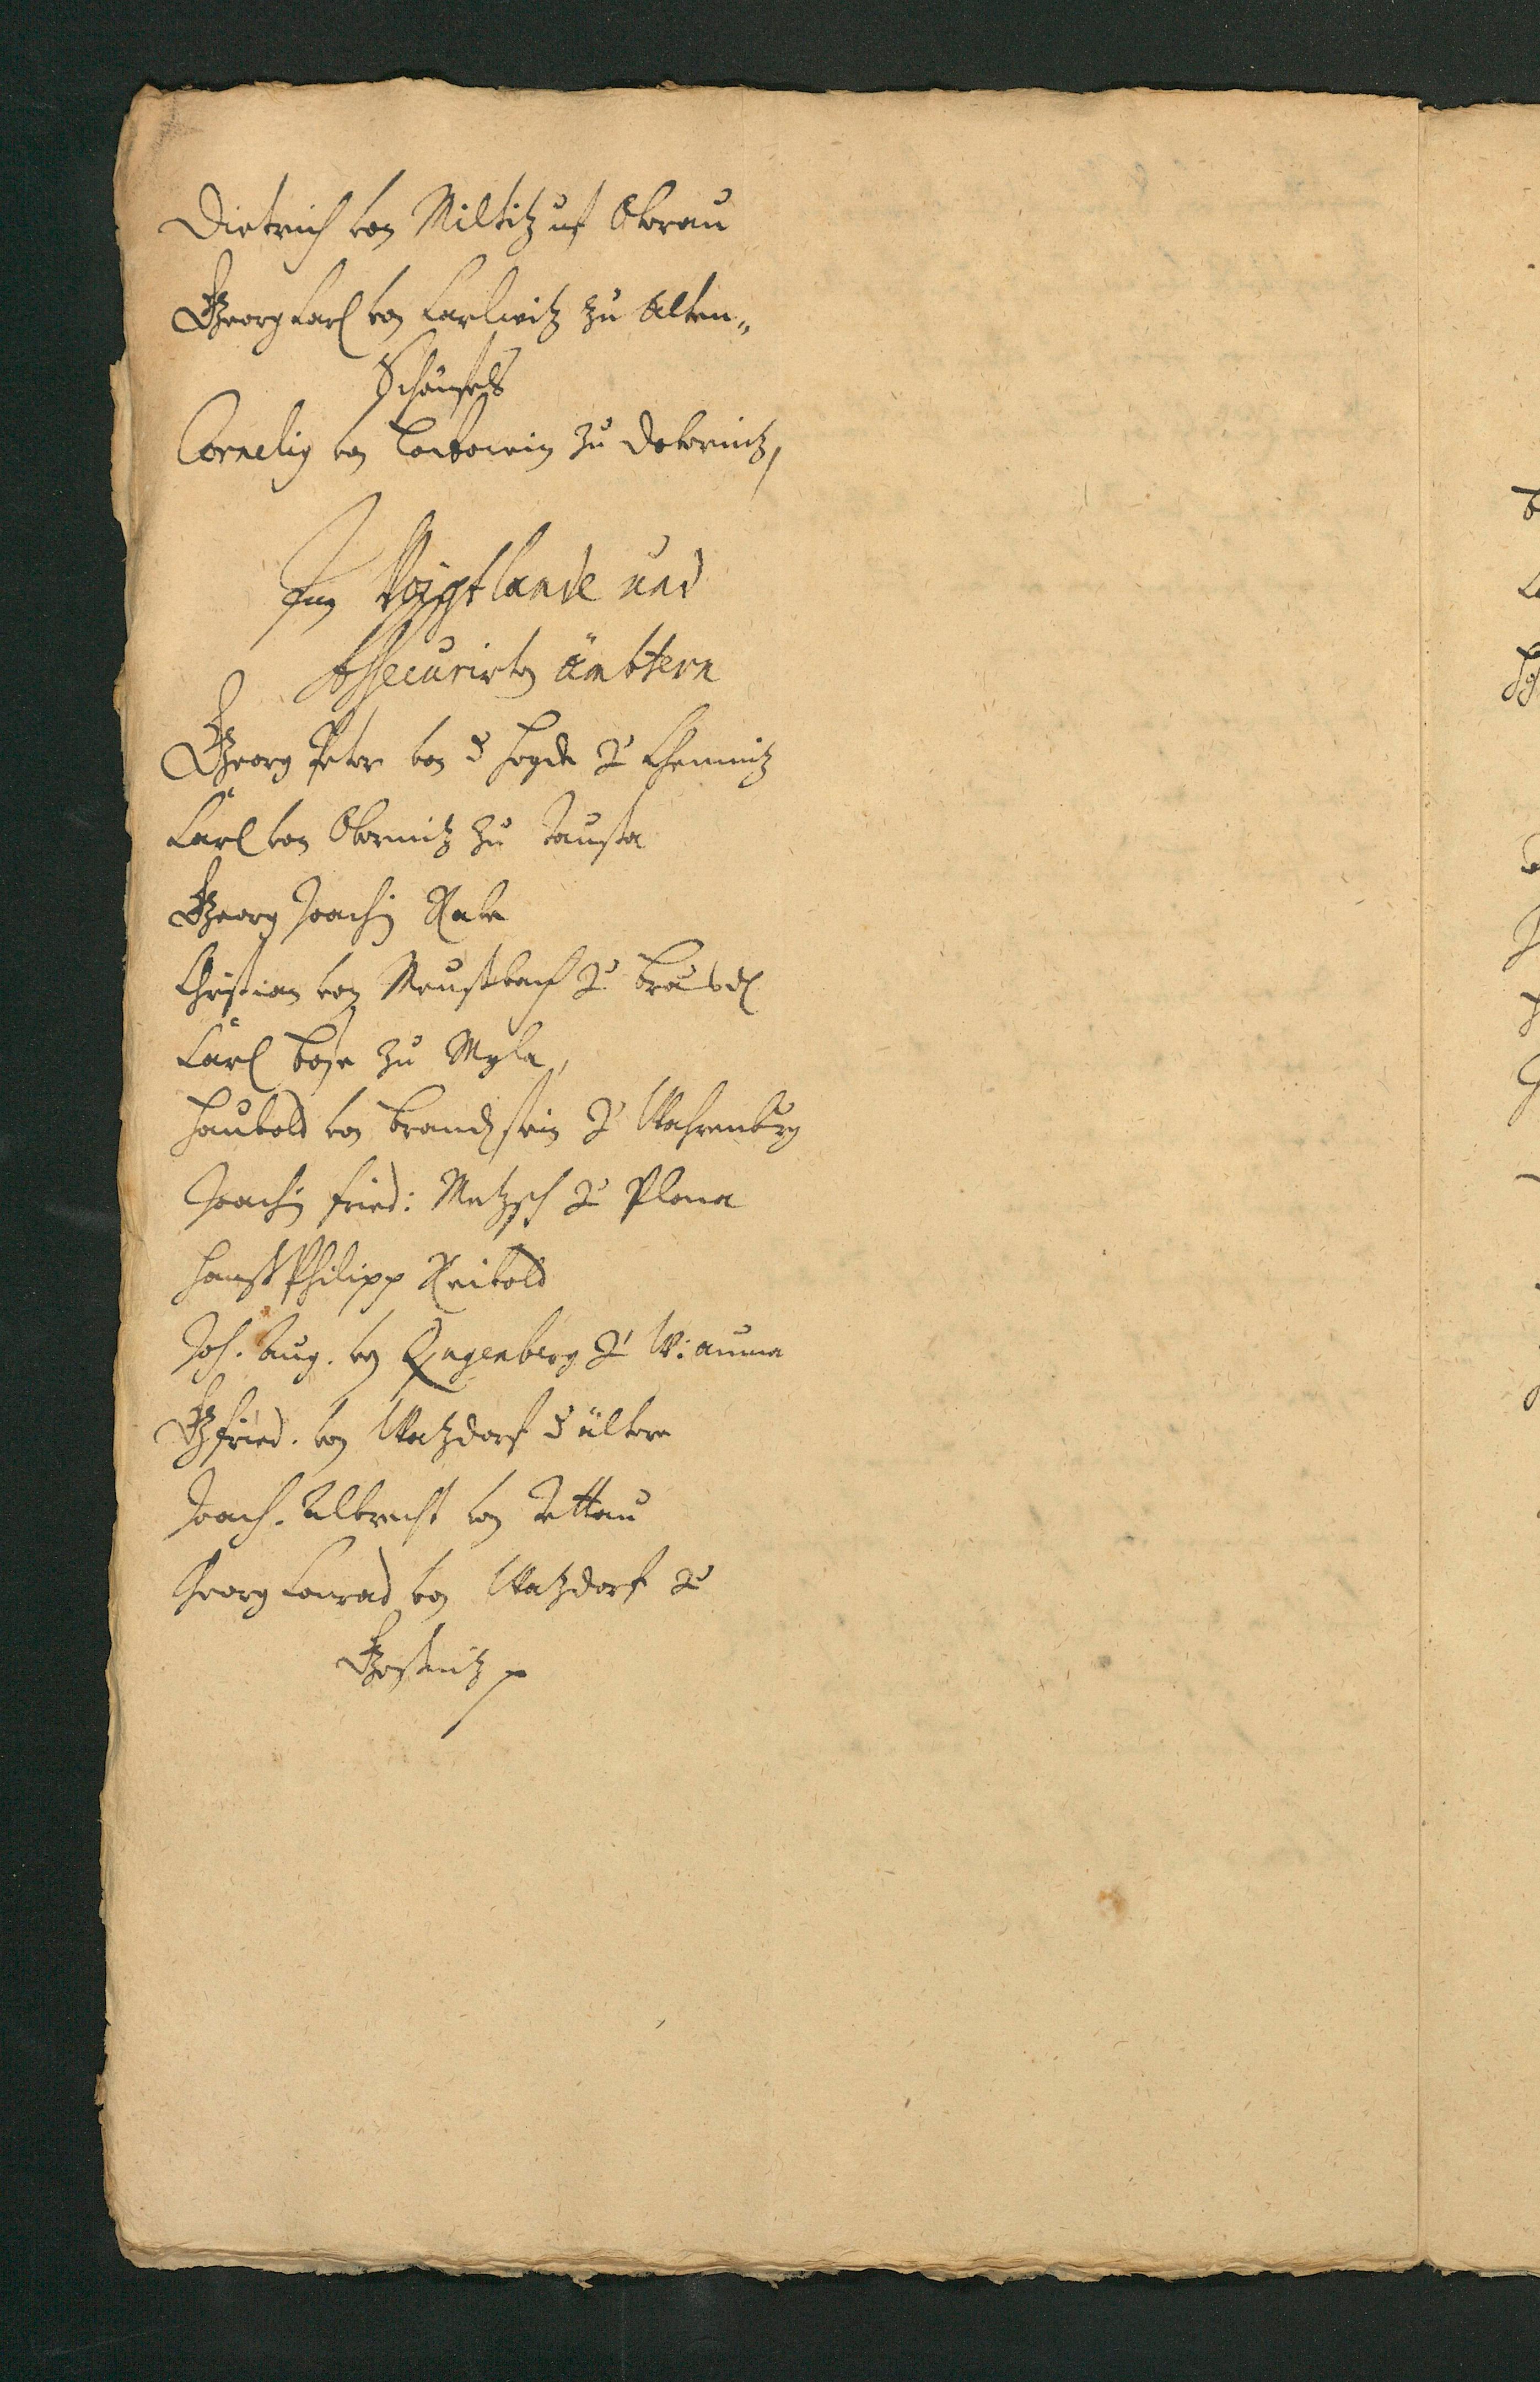 Dietrich von Miltitz uf Oberau
Georg Carl von Carlwitz zu Alten-
Schönfels
Cornelig von zu
Im Voigtlande und
Assecurirten ämbtern
Georg Peter von d Heyde zu Chemnitz
Carl von Obernitz zu
Georg Joachim Rabe
Christian von Meusebach zu
Carl Bose zu Myla,
Haubold von Brandstein zu Wahrenburg
Joachim Fried: Metzsch zu Plona
Hanß Philipp Reibold
Joh. Aug. von zu
G Fried. von Watzdorf d ältere
Joach. Albrecht von Tettau
Georg Conrad von Watzdorf zu